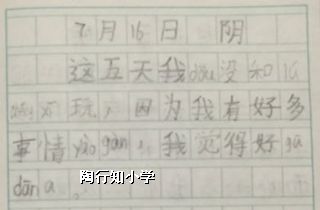 7月15日 阴
这五天我dōu没和
玩，因为我有好多
事情yào gàn，我觉得好gū
dān a。
陶行知小学